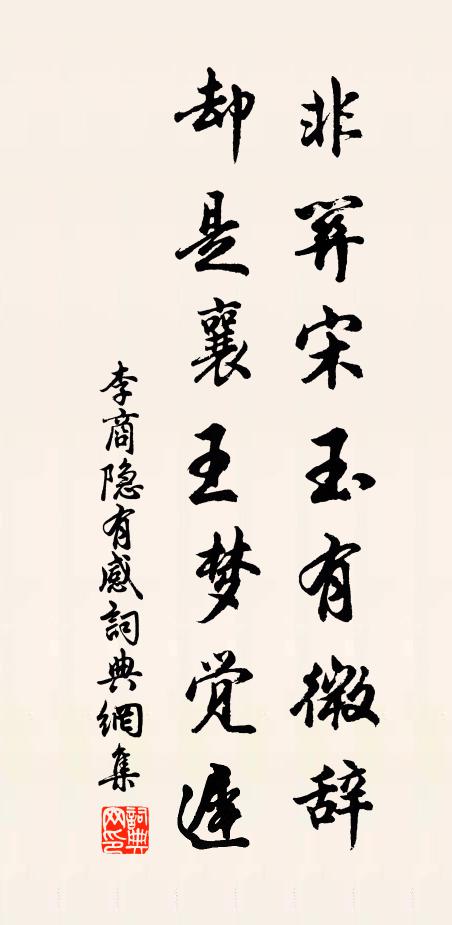 非关宋玉有微辞
却是襄王梦觉迟
李商隐有感詞典網集
詞典網印